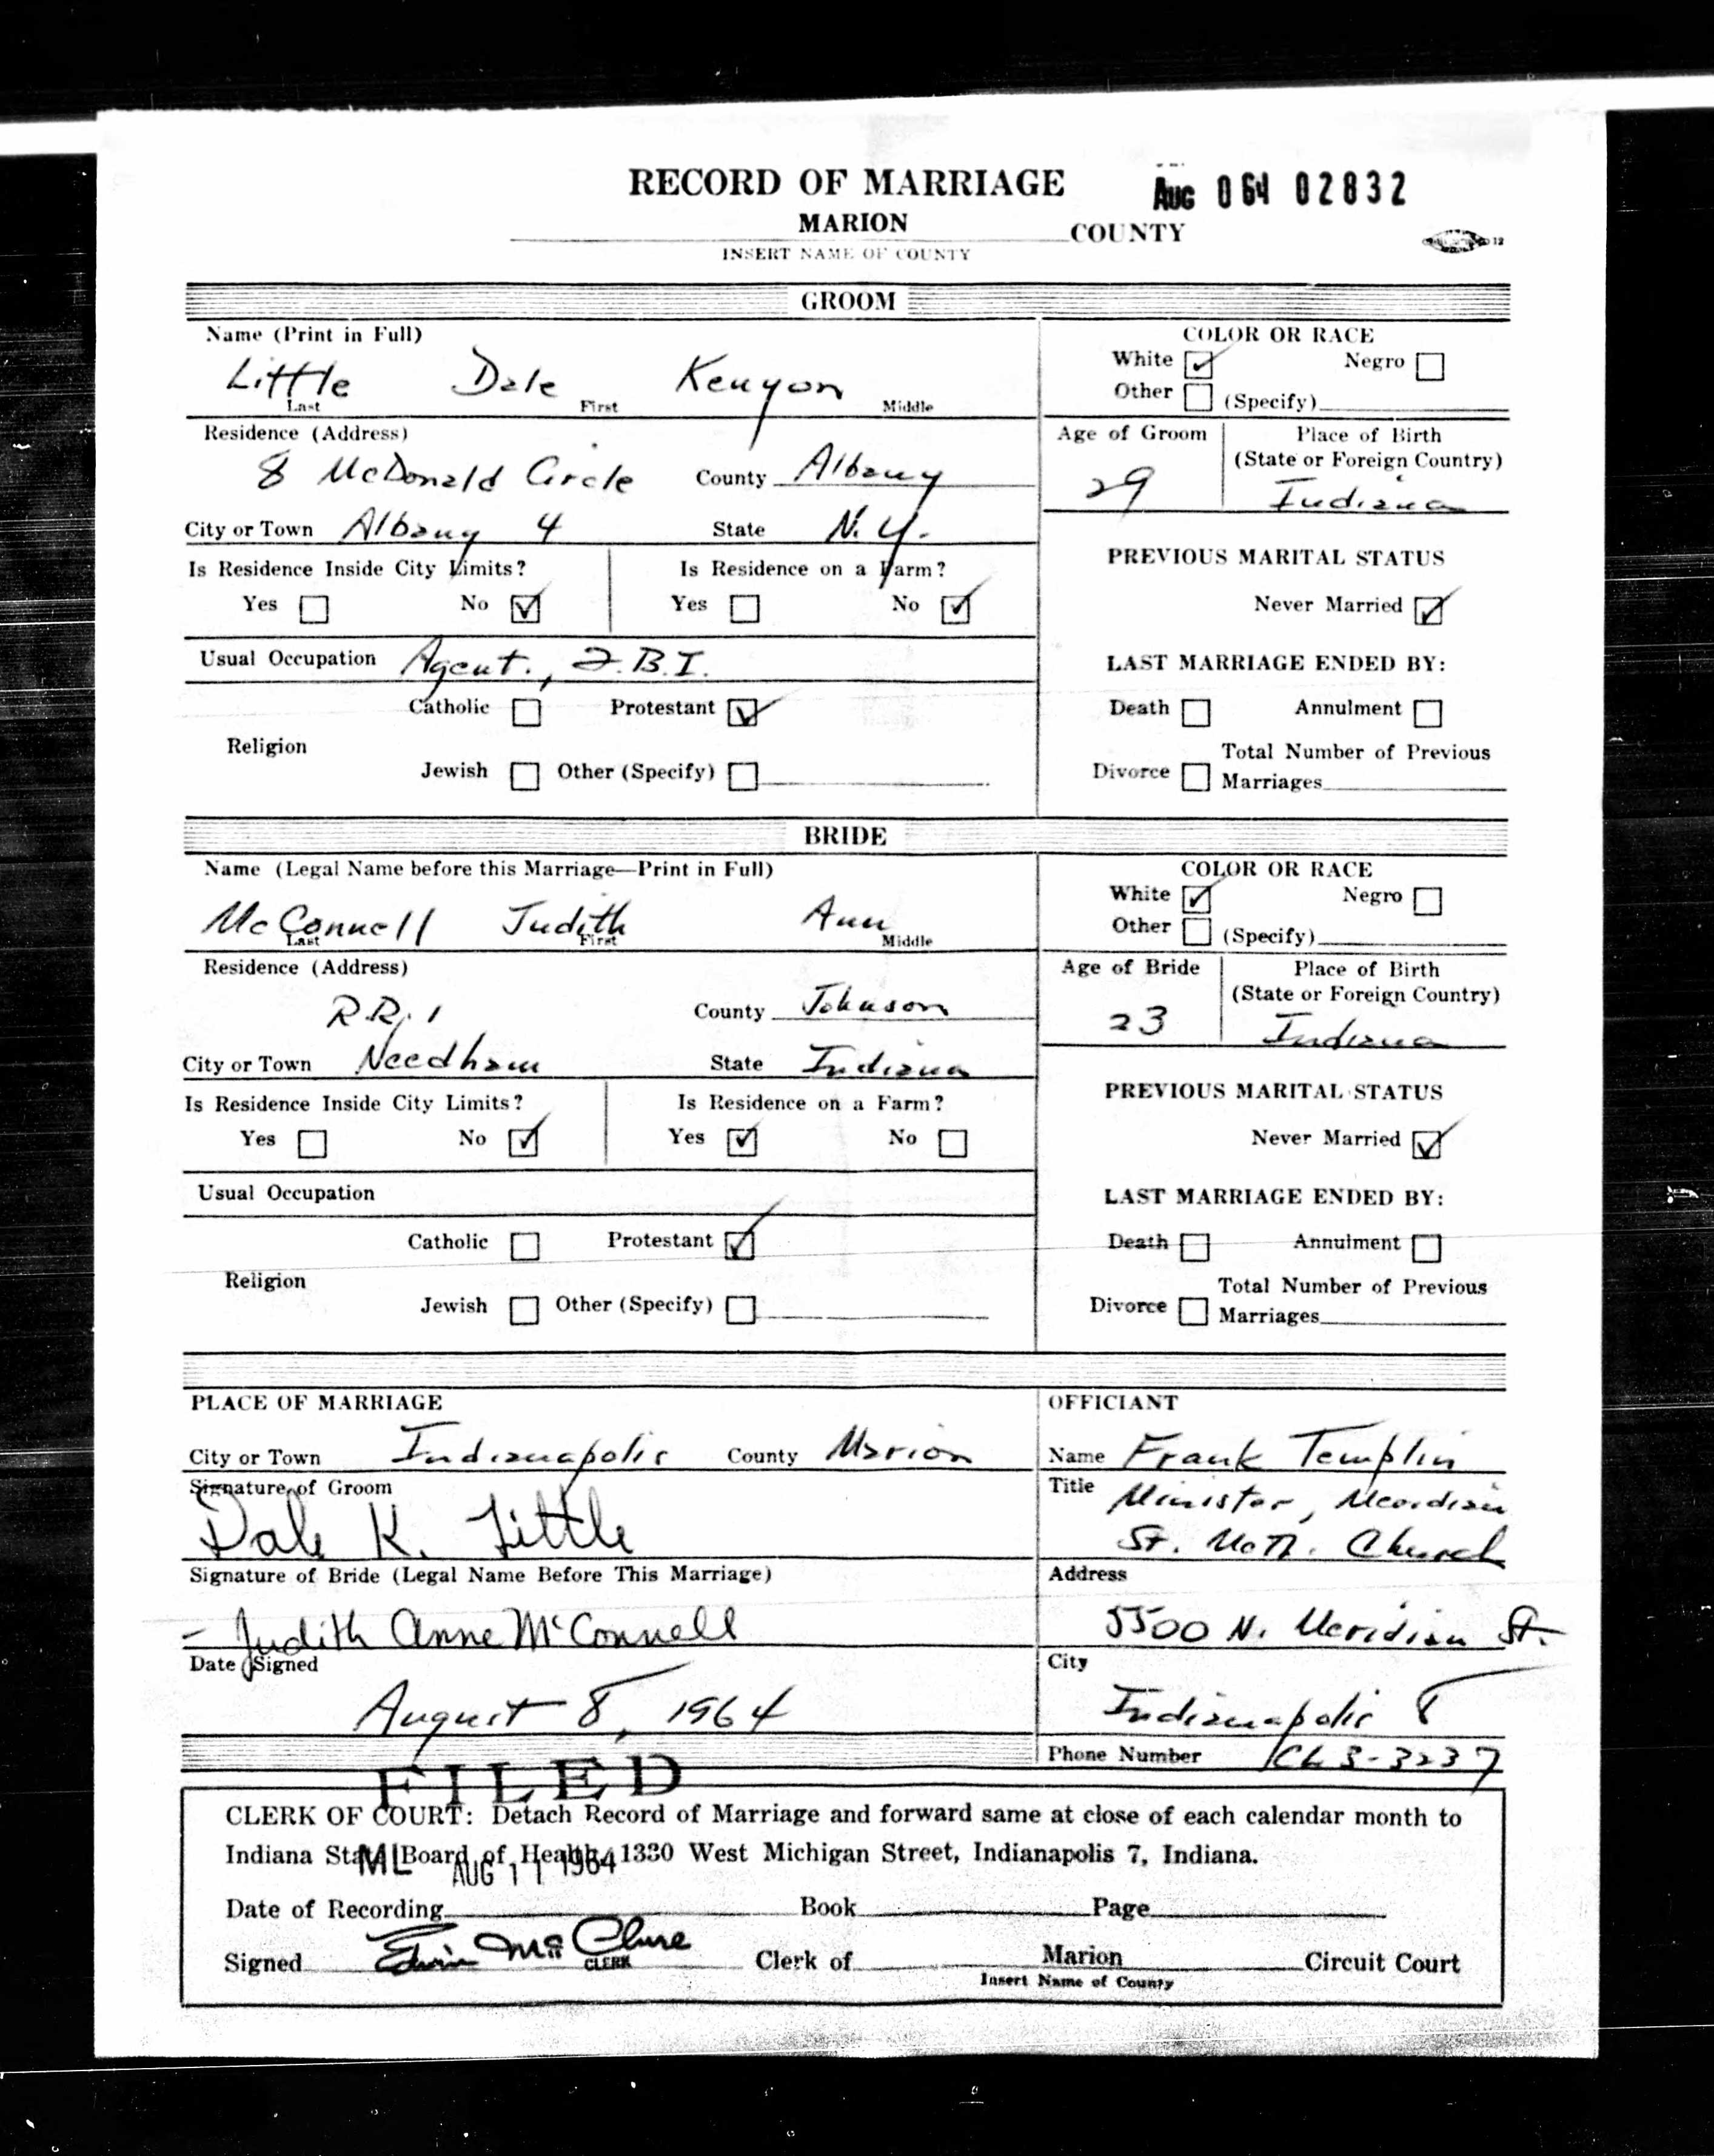 RECORD OF MARRIAGE
AUG 0 64 02832
MARION COUNTY
INSERT NAME OF COUNTY
12
GROOM
Name (Print in Full)
Little Dale Kenyon
Last First Middle
COLOR OR RACE
White ☑ Negro ☐
Other ☐ (Specify)
Residence (Address)
8 McDonald Circle County Albany
Age of Groom
29
Place of Birth
(State or Foreign Country)
Indiana
City or Town Albany 4 State N.Y.
Is Residence Inside City Limits?
Yes ☐ No ☑
Is Residence on a Farm?
Yes ☐ No ☑
PREVIOUS MARITAL STATUS
Never Married ☑
Usual Occupation Agent., F.B.I.
LAST MARRIAGE ENDED BY:
Religion
Catholic ☐ Protestant ☑
Jewish ☐ Other (Specify) ☐
Death ☐ Annulment ☐
Total Number of Previous
Divorce ☐ Marriages
BRIDE
Name (Legal Name before this Marriage—Print in Full)
McConnell Judith Ann
Last First Middle
COLOR OR RACE
White ☑ Negro ☐
Other ☐ (Specify)
Residence (Address)
R.R. 1 County Johnson
Age of Bride
23
Place of Birth
(State or Foreign Country)
Indiana
City or Town Needham State Indiana
Is Residence Inside City Limits?
Yes ☐ No ☑
Is Residence on a Farm?
Yes ☑ No ☐
PREVIOUS MARITAL STATUS
Never Married ☑
Usual Occupation
LAST MARRIAGE ENDED BY:
Religion
Catholic ☐ Protestant ☑
Jewish ☐ Other (Specify) ☐
Death ☐ Annulment ☐
Total Number of Previous
Divorce ☐ Marriages
PLACE OF MARRIAGE
City or Town Indianapolis County Marion
Signature of Groom
Dale K. Little
Signature of Bride (Legal Name Before This Marriage)
Judith Anne McConnell
Date Signed
August 8, 1964
OFFICIANT
Name Frank Templin
Title Minister, Meridian
St. Meth. Church
Address
5500 N. Meridian St.
City
Indianapolis 8
Phone Number CL 3-3237
FILED
CLERK OF COURT: Detach Record of Marriage and forward same at close of each calendar month to
Indiana State Board of Health, 1330 West Michigan Street, Indianapolis 7, Indiana.
ML AUG 11 1964
Date of Recording Book Page
Signed Edwin McClure Clerk of Marion Circuit Court
CLERK
Insert Name of County